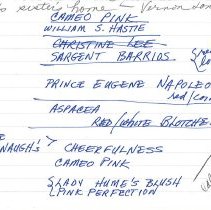 sister's home - Vernon
CAMEO PINK
WILLIAM S. HASTIE
CHRISTINE LEE
SARGENT BARRIOS
PRINCE EUGENE NAPOLEO
red/
ASPACEA
RED/WHITE BLOTCHE
NAUGH'S > CHEERFULNESS
CAMEO PINK
{LADY HUME'S BLUSH
PINK PERFECTION